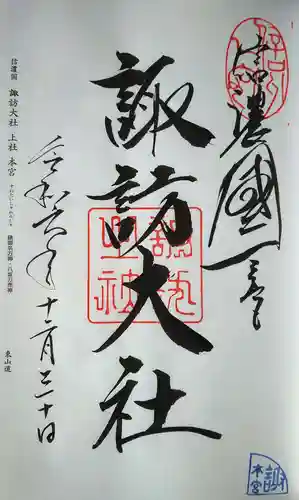 信濃國一之宮
諏訪大社
諏訪上社
令和六年十二月三十日
信濃国 諏訪大社 上社 本宮
東山道
諏
本宮